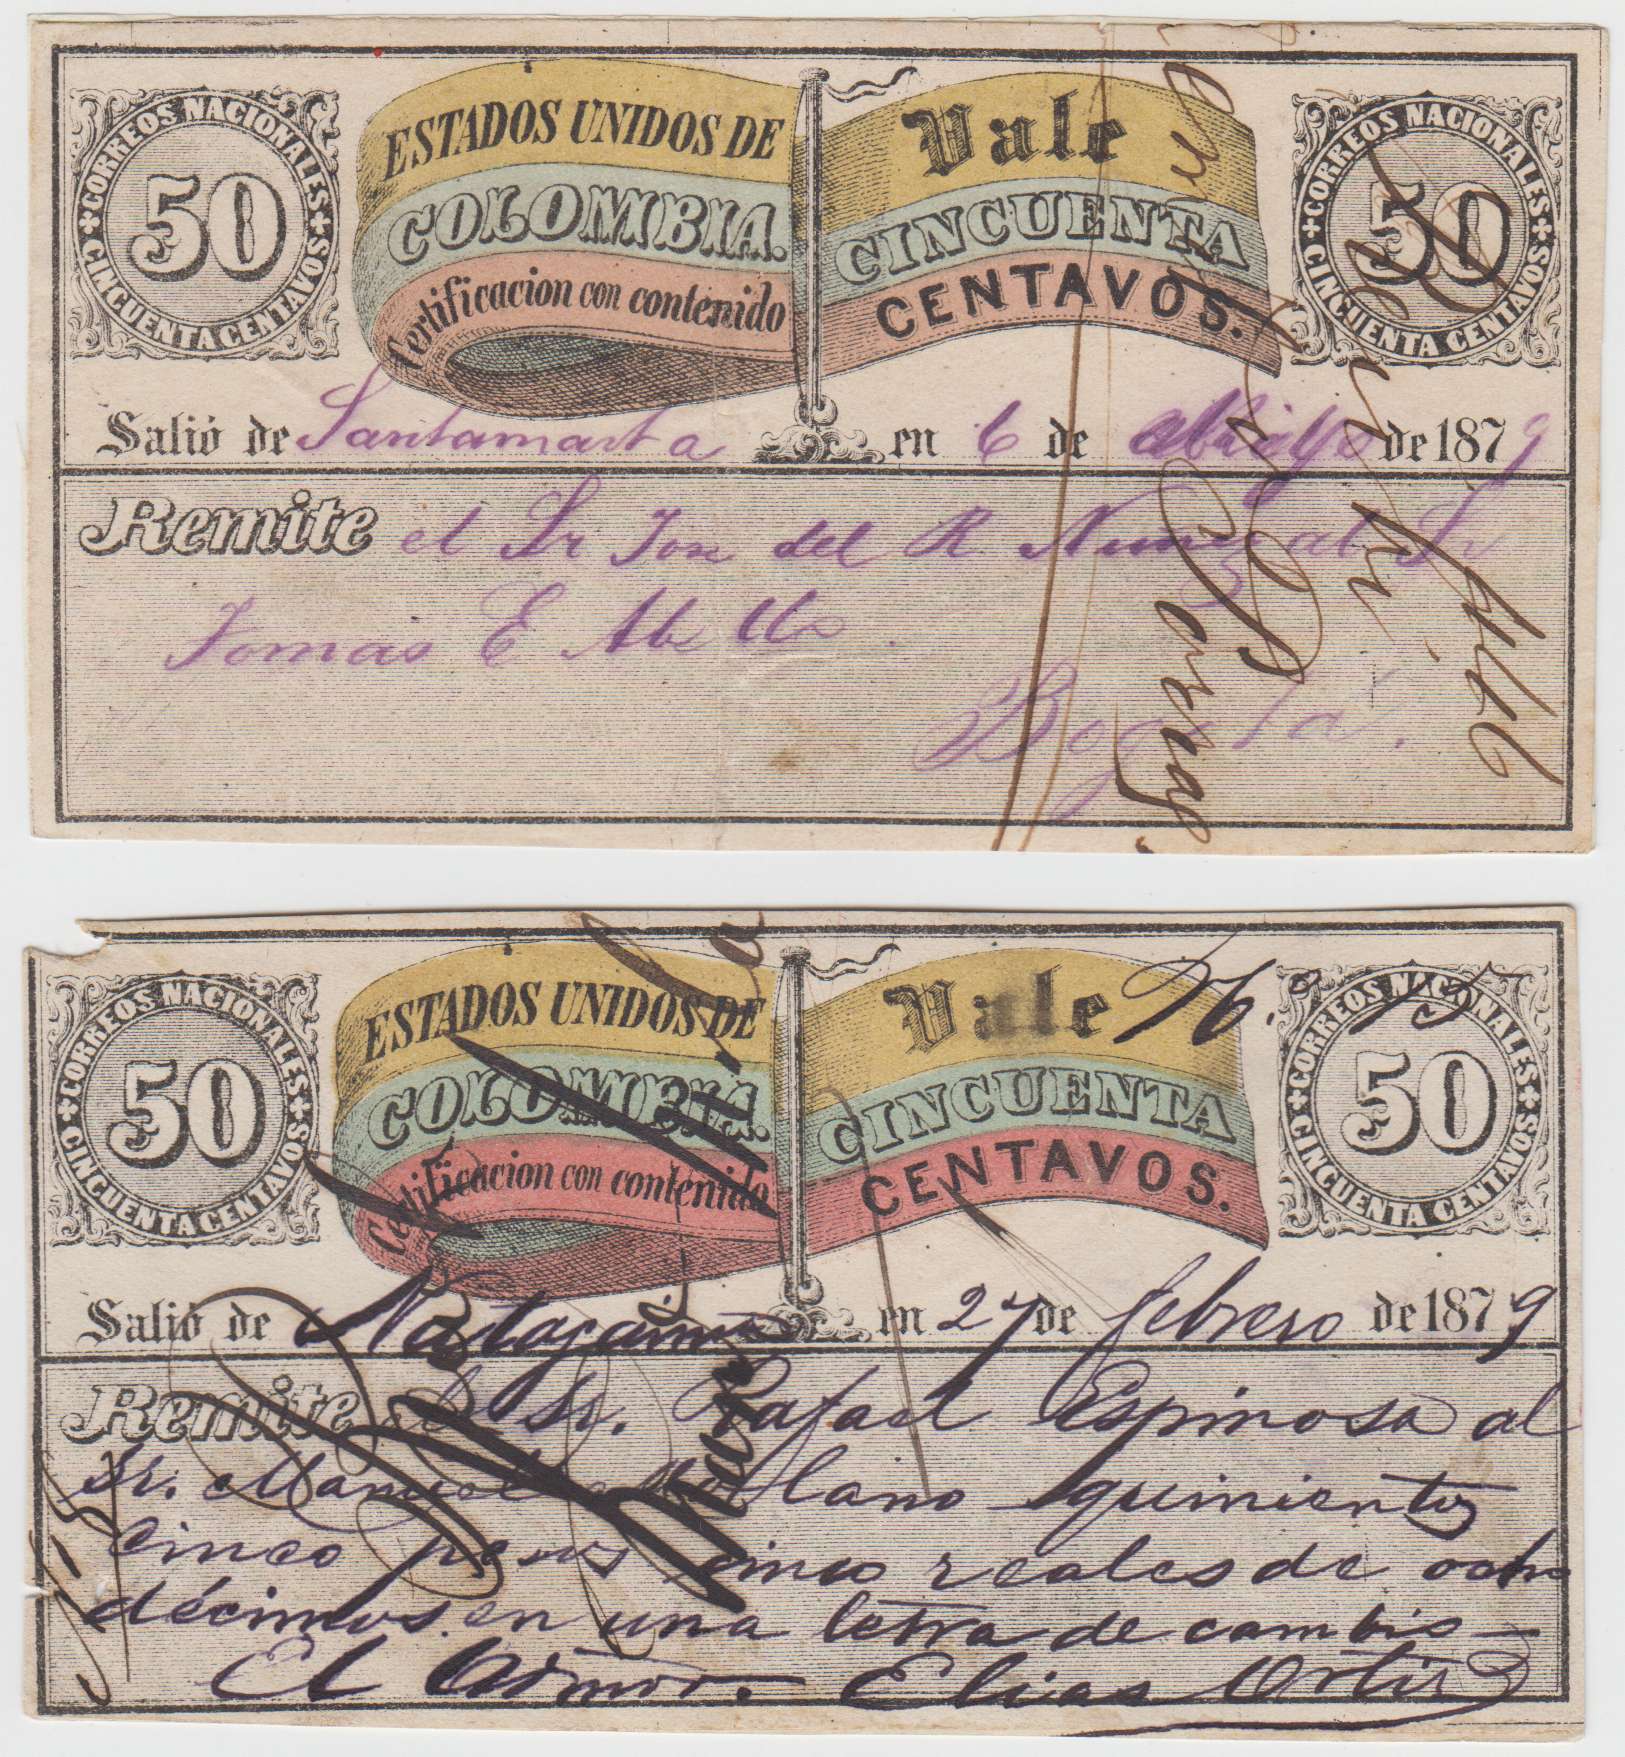 50
CORREOS NACIONALES
CINCUENTA CENTAVOS
ESTADOS UNIDOS DE
COLOMBIA.
Certificacion con contenido
Vale
CINCUENTA
CENTAVOS.
50
CORREOS NACIONALES
CINCUENTA CENTAVOS
Salió de Santamarta en 6 de de 1879
Remite el Sr Jose del R Nunez al Sr
Tomas E Abello.
Bogotá.
50
CORREOS NACIONALES
CINCUENTA CENTAVOS
ESTADOS UNIDOS DE
COLOMBIA.
Certificacion con contenido
Vale
CINCUENTA
CENTAVOS.
50
CORREOS NACIONALES
CINCUENTA CENTAVOS
Salió de Natagaima en 27 de febrero de 1879
Remite el Sr. Rafael Espinosa al
Sr. Manuel Llano quinientos
cinco pesos cinco reales de ocho
décimos en una letra de cambio
El Admor. Elias Ortiz